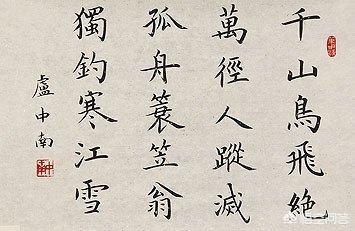 千山鳥飛絶
萬徑人蹤滅
孤舟簑笠翁
獨釣寒江雪
盧中南